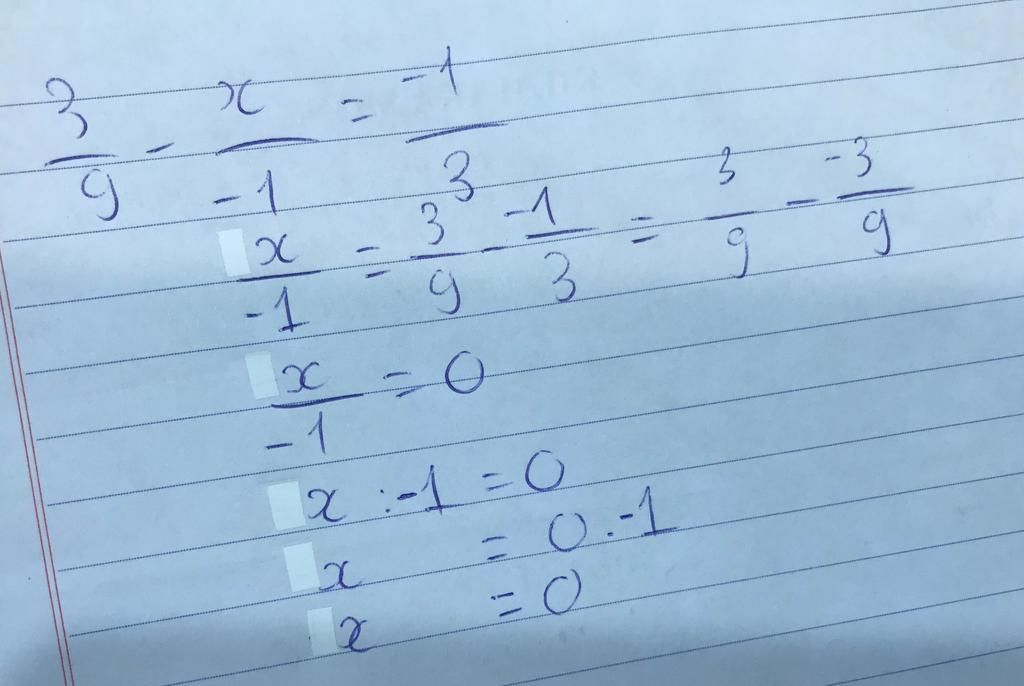 3/9 - x/-1 = -1/3
x/-1 = 3/9 - -1/3 = 3/9 - -3/9
x/-1 = 0
x : -1 = 0
x = 0 . -1
x = 0